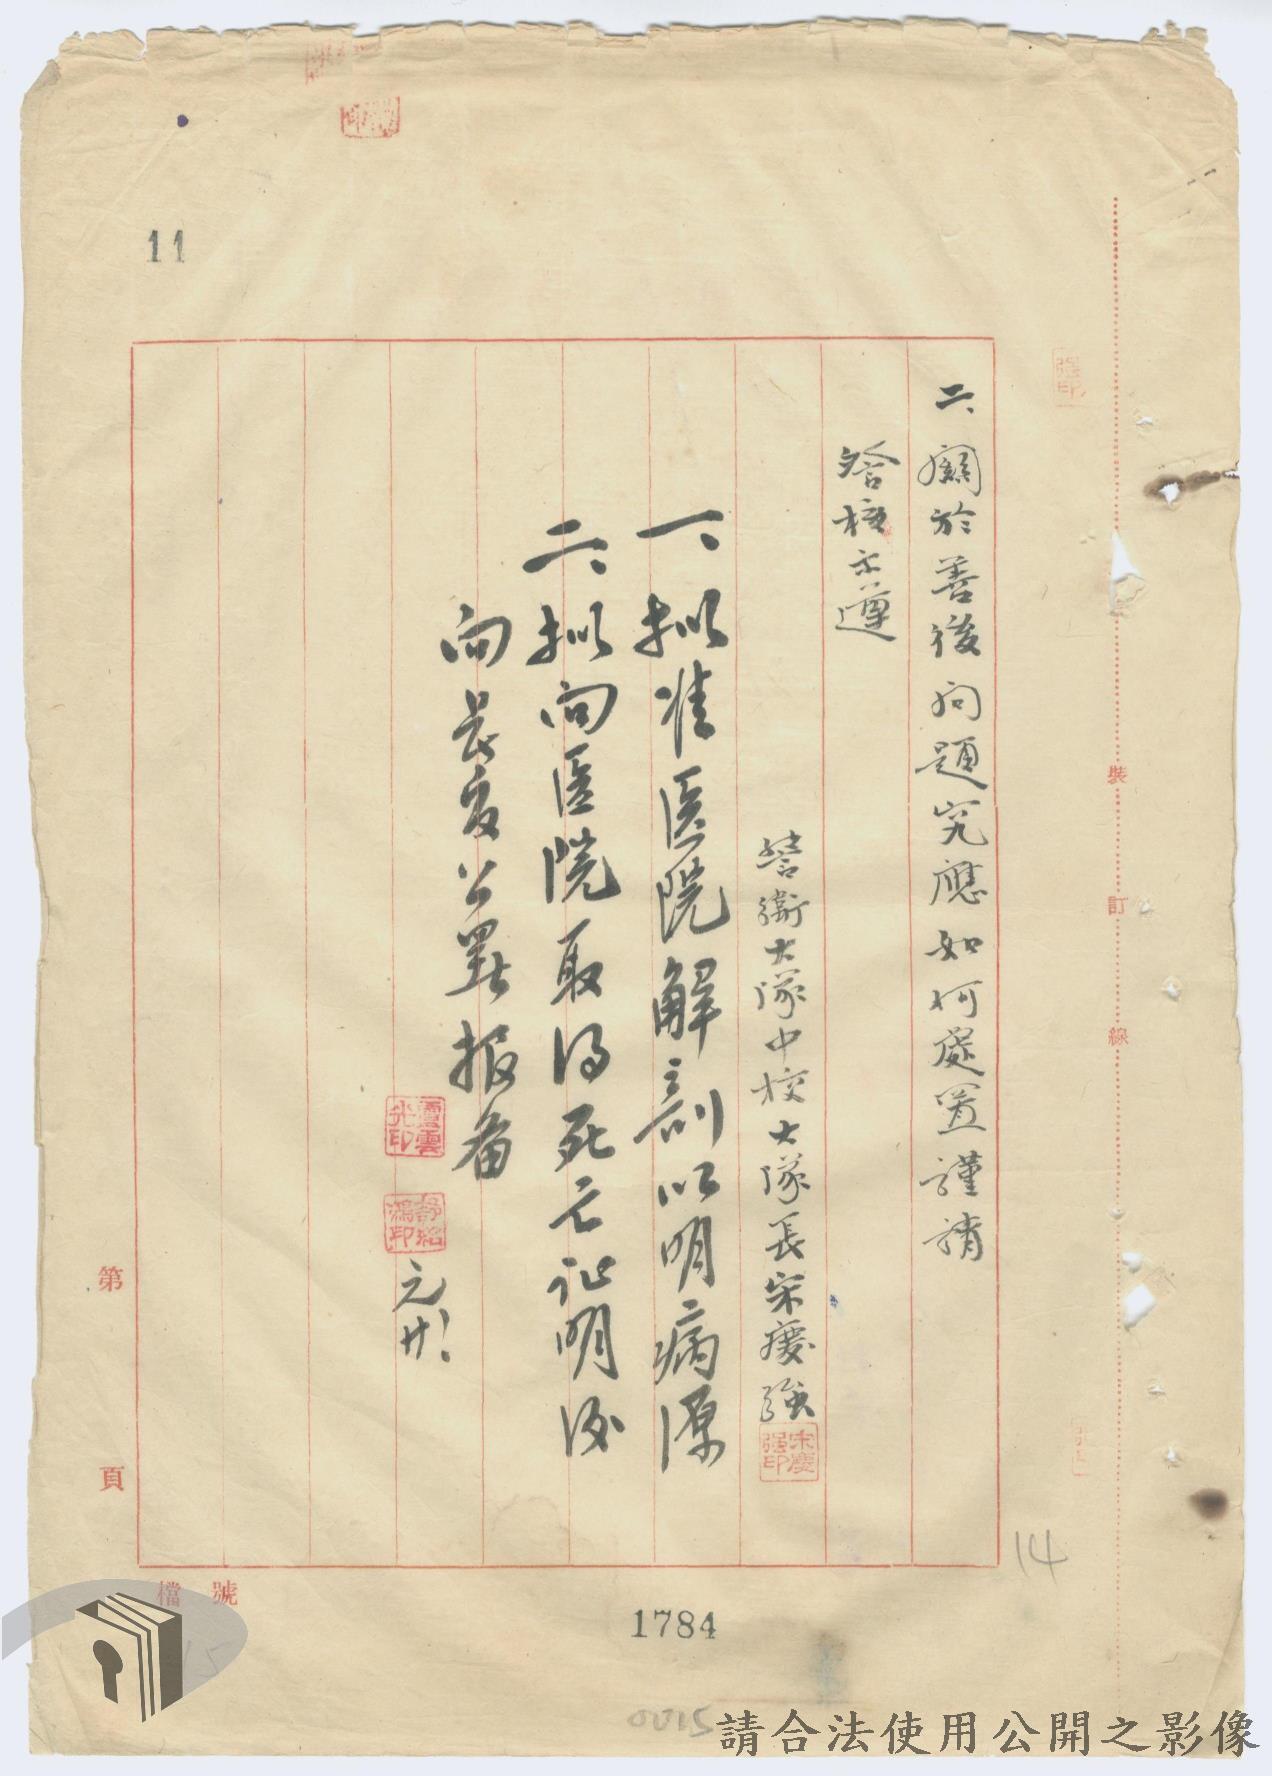 二、關於善後問題究應如何處置謹請
答核示遵
警衛大隊中校大隊長宋慶強
宋慶強印
一、拟准医院解剖以明病源
二、拟向医院取得死亡证明后
向長官公署报备
雲光印
鴻印
元廿
11
裝訂線
第 頁
檔 號
1784
14
0015
請合法使用公開之影像